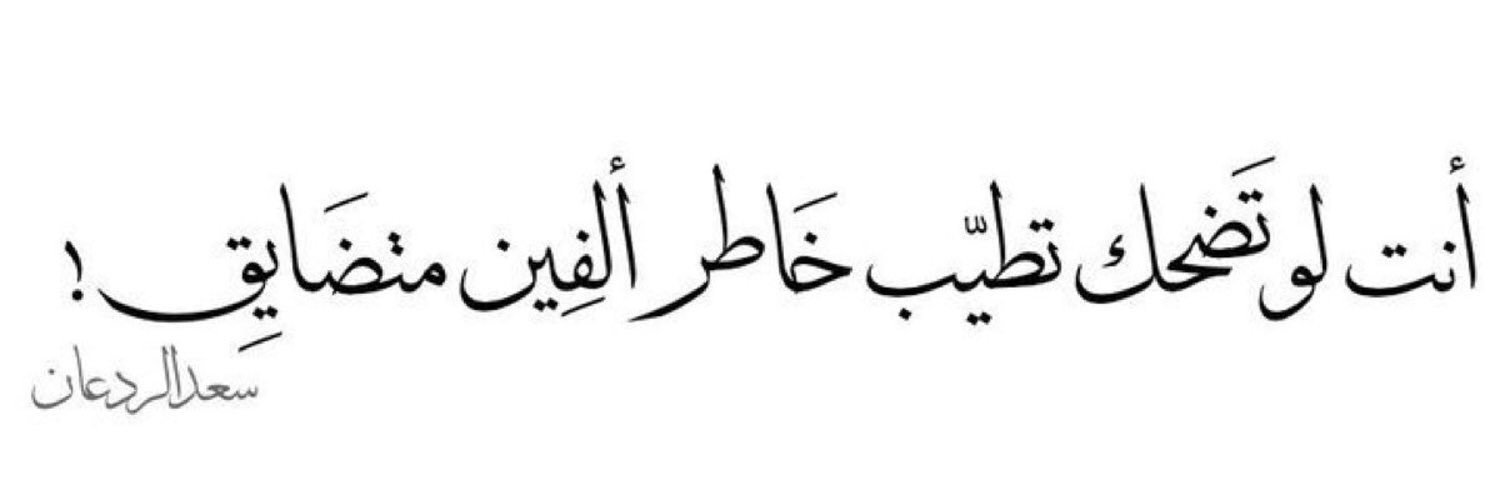 أنت لو تَضحك تطيّب خَاطر ألفِين متضَايقِ !
سعد الردعان